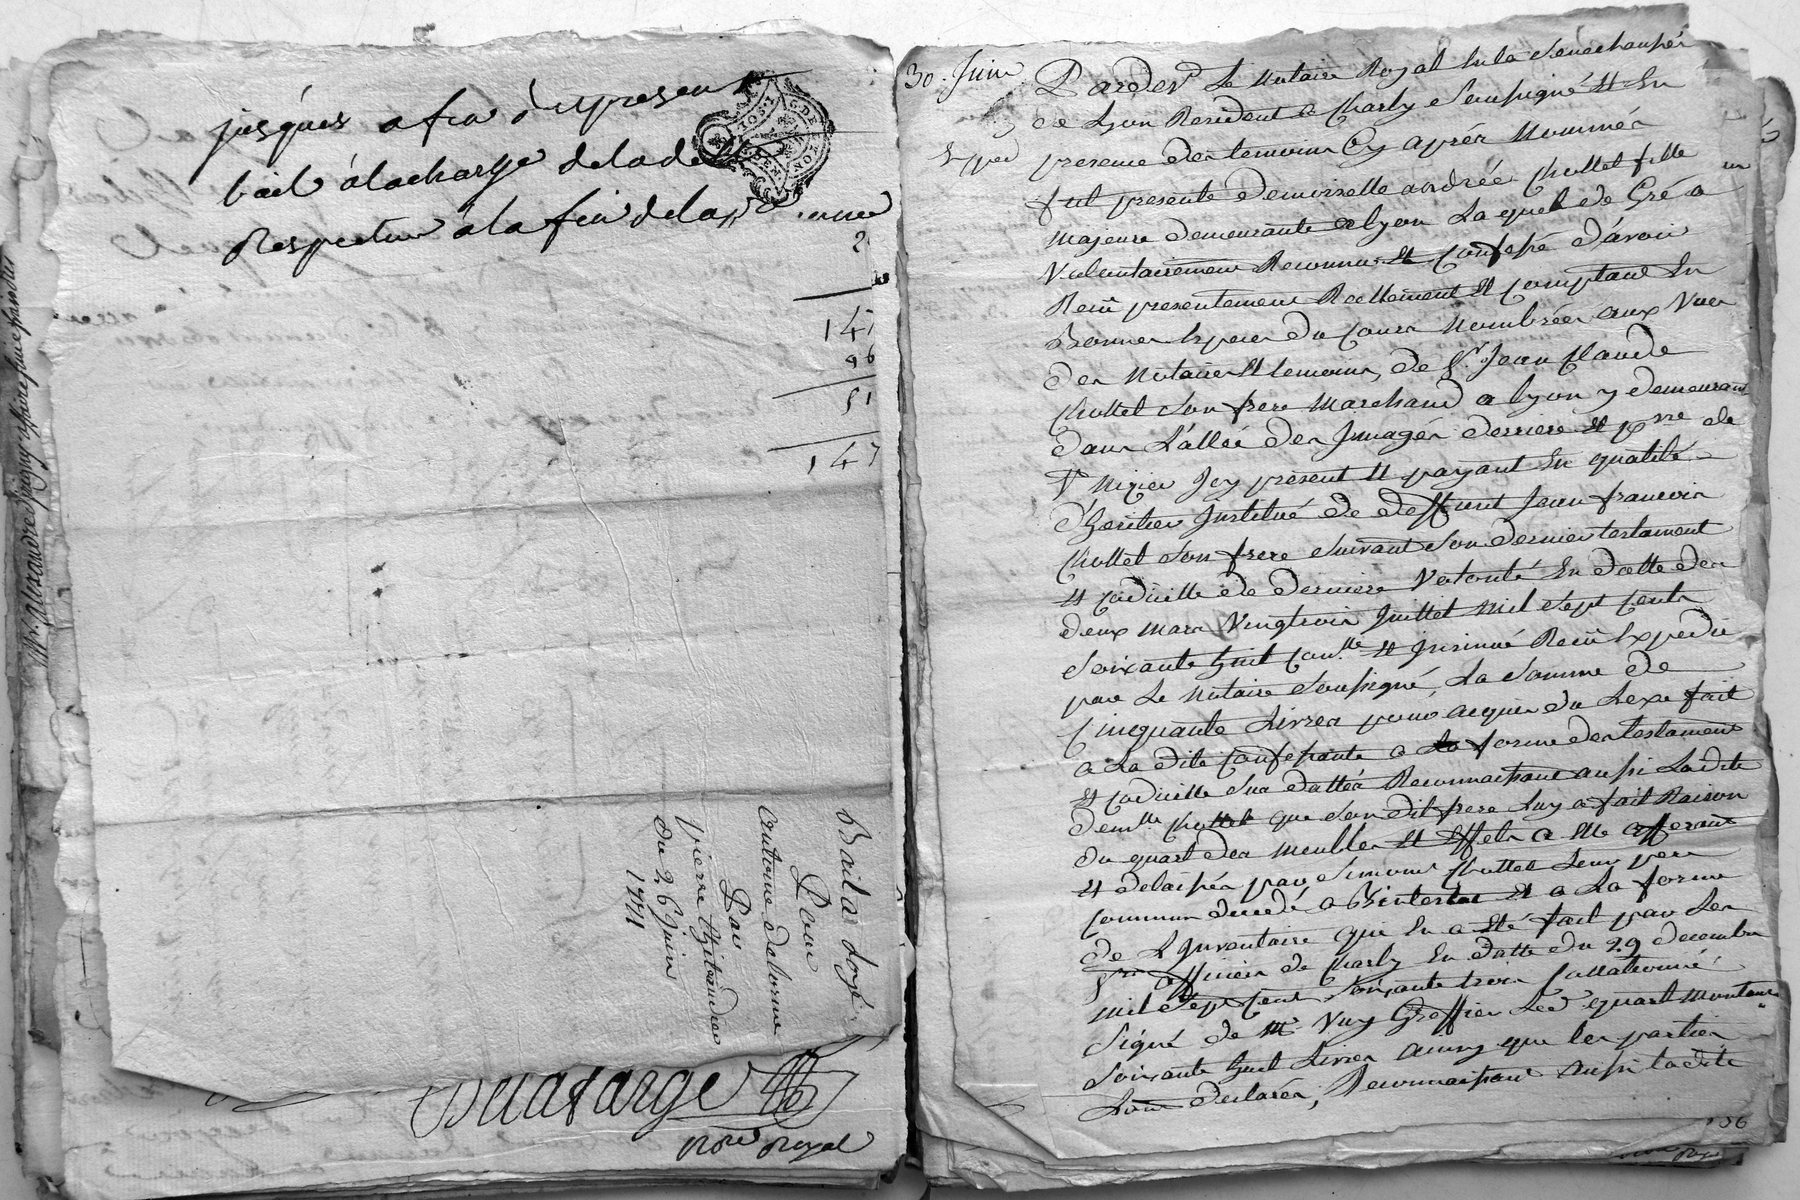 jusques a fin du present
bail à la charge de la de
respective à la fin de la année
2
147
96
51
147
Bail a loyé
Pour
antoine delorme
Par
pierre
du 26 juin
1771
Delafarge
Nore Royal
Mr. alexandre
30 Juin
Exped
Pardevt Le Notaire Royal En la Senechaussée
de Lyon Resident a Charly Soussigné Et En
presence des temoins Cy après Nommés
fut presente demoiselle andrée Chollet fille
majeure demeurante a lyon Laquelle de Gré a
Volontairement Reconnu Et Confessé d'avoir
Receu presentement Reellement Et Comptant En
Bonnes Especes du Cours Nombrées aux Vues
des Notaire Et temoins, de Sr. Jean Claude
Chollet Son frere Marchand a lyon y demeurant
dans L'allée des Images derriere Et psse de
St Nizier Icy present Et payant En qualité
d'heritier Institué de deffunt Jean francois
Chollet Son frere Suivant Son dernier testament
Et Codicille de derniere Volonté En datte des
deux mars Vingtrois Juillet Mil Sept Cents
Soixante huit Conllé Et Insinué Receu Expedié
par Le Notaire Soussigné, La Somme de
Cinquante Livres pour acquis du Legs fait
a La dite Confessante a La forme des testament
Et Codicille Sus dattés Reconnaissant aussi Ladite
demlle Chollet que Son dit frere Luy a fait Raison
du quart des Meubles Et Effets a Elle afferant
Et delaissés par Simond Chollet Leur pere
Commun decedé a Bintestat Et a La forme
de L'Inventaire qui En a Eté fait par Les
Srs officiers de Charly En datte du 29 decembre
Mil Sept Cent Soixante trois Collationné
Signé de Me Vuy Greffier Led quart Montant
Soixante huit Livres ainsy que les parties
L'ont declarés, Reconnaissant aussi ladite
156